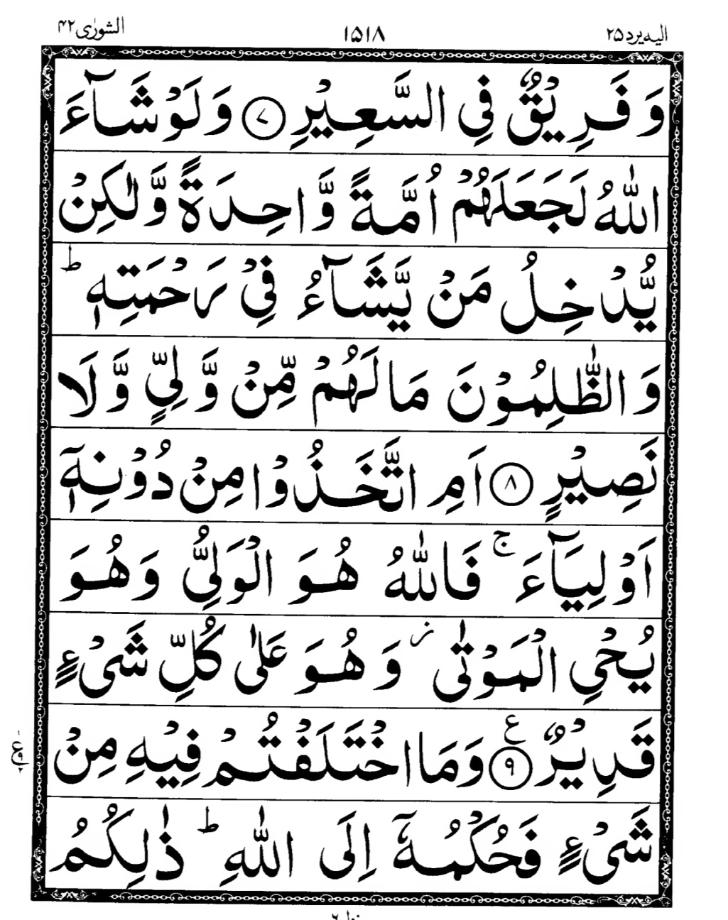 الیه یرد ۲۵ ۱۵۱۸ الشورٰی ۴۲
وَ فَرِیْقٌ فِی السَّعِیْرِ ۝۷ وَ لَوْ شَآءَ
اللّٰهُ لَجَعَلَهُمْ اُمَّةً وَّاحِدَةً وَّلٰكِنْ
یُّدْخِلُ مَنْ یَّشَآءُ فِیْ رَحْمَتِهٖ ؕ
وَ الظّٰلِمُوْنَ مَا لَهُمْ مِّنْ وَّلِیٍّ وَّ لَا
نَصِیْرٍ ۝۸ اَمِ اتَّخَذُوْا مِنْ دُوْنِهٖۤ
اَوْلِیَآءَ ۚ فَاللّٰهُ هُوَ الْوَلِیُّ وَ هُوَ
یُحْیِ الْمَوْتٰی ؗ وَ هُوَ عَلٰی كُلِّ شَیْءٍ
قَدِیْرٌ ۝۹ ع وَ مَا اخْتَلَفْتُمْ فِیْهِ مِنْ
شَیْءٍ فَحُكْمُهٗۤ اِلَی اللّٰهِ ؕ ذٰلِكُمُ